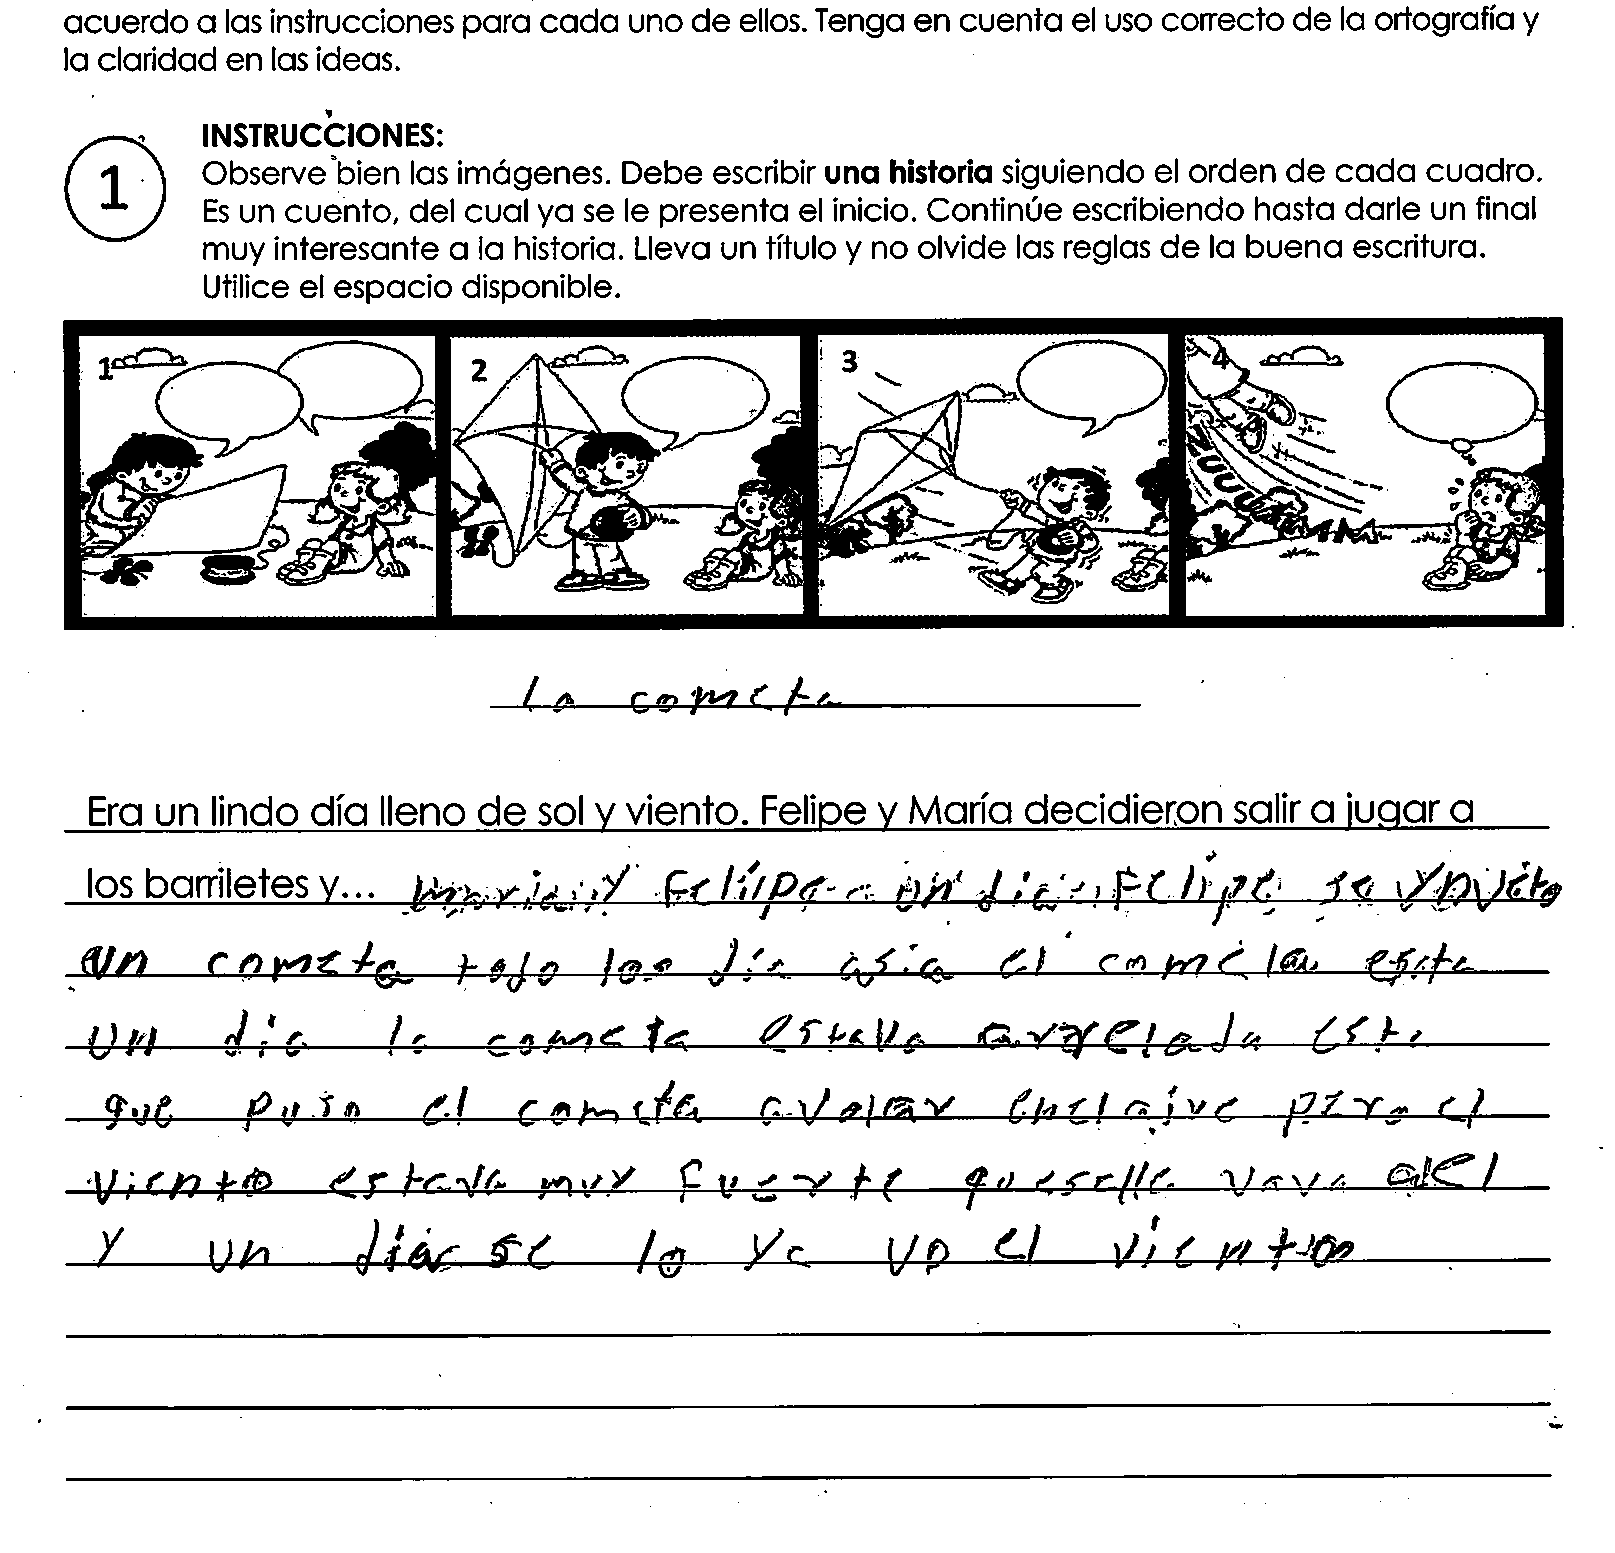 acuerdo a las instrucciones para cada uno de ellos. Tenga en cuenta el uso correcto de la ortografía y
la claridad en las ideas.
INSTRUCCIONES:
1
Observe bien las imágenes. Debe escribir una historia siguiendo el orden de cada cuadro.
Es un cuento, del cual ya se le presenta el inicio. Continúe escribiendo hasta darle un final
muy interesante a la historia. Lleva un título y no olvide las reglas de la buena escritura.
Utilice el espacio disponible.
1 2 3 4
la cometa
Era un lindo día lleno de sol y viento. Felipe y María decidieron salir a jugar a
los barriletes y... un día Felipe se
un cometa todo los dia asia el cometa esta
un dia la cometa estava esta
que puso el cometa avolar pero el
viento estava muy fuerte
y un día se lo ye vo el viento